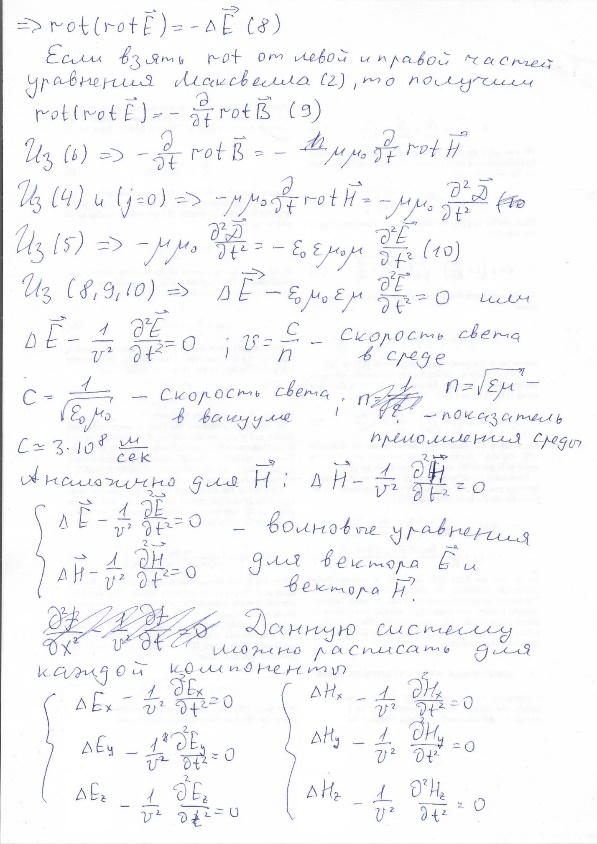 => rot(rot E⃗) = - Δ E⃗ (8)
Если взять rot от левой и правой частей
уравнения Максвелла (2), то получим
rot(rot E⃗) = - ∂/∂t rot B⃗ (9)
Из (6) => - ∂/∂t rot B⃗ = - μμ₀ ∂/∂t rot H⃗
Из (4) и (j=0) => -μμ₀ ∂/∂t rot H⃗ = -μμ₀ ∂²D⃗/∂t²
Из (5) => -μμ₀ ∂²D⃗/∂t² = - ε₀εμ₀μ ∂²E⃗/∂t² (10)
Из (8,9,10) => ΔE⃗ - ε₀μ₀εμ ∂²E⃗/∂t² = 0 или
ΔE⃗ - 1/v² ∂²E⃗/∂t² = 0 ; v = c/n - скорость света
в среде
c = 1/√ε₀μ₀ - скорость света ; n = √εμ -
в вакууме - показатель
преломления среды
c ≃ 3·10⁸ м/сек
Аналогично для H⃗: ΔH⃗ - 1/v² ∂²H⃗/∂t² = 0
{ ΔE⃗ - 1/v² ∂²E⃗/∂t² = 0 - волновые уравнения
ΔH⃗ - 1/v² ∂²H⃗/∂t² = 0 для вектора E⃗ и
вектора H⃗.
Данную систему
можно расписать для
каждой компоненты
{ ΔEx - 1/v² ∂²Ex/∂t² = 0 { ΔHx - 1/v² ∂²Hx/∂t² = 0
ΔEy - 1/v² ∂²Ey/∂t² = 0 ΔHy - 1/v² ∂²Hy/∂t² = 0
ΔEz - 1/v² ∂²Ez/∂t² = 0 ΔHz - 1/v² ∂²Hz/∂t² = 0